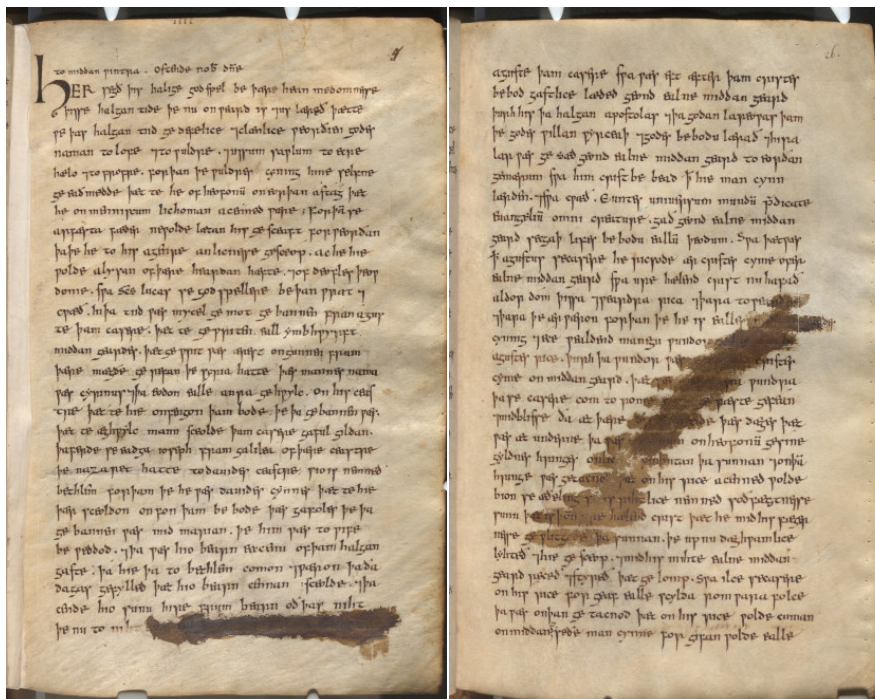 to middan wintra . Ostende nob dñe
HER sægð þis halige godspel be þære hean medomnesse
þisse halgan tide þe nu onweard is 7 us læreð þætte
we þas halgan tiid gedefelice 7 clænlice weorðien godes
naman to lofe 7 to wuldre . 7 ussum sawlum to ecre
hælo 7 to frofre . for þan þe wuldres cyning hine selfne
geeadmedde þætte he of heofonū on eorþan astag þæt
he on mænniscum lichoman acenned wære ; for þā se
arfæsta fæder ne wolde lætan his gesceaft forweorðan
þa þe he to his agenre anlicnesse gesceop . ac he hie
wolde alysan of þære heardan hæfte . 7 of deofles þeow
dome . swa scs lucas se godspellere be þan wrat 7
cwæð . In þa tiid wæs mycel gemot gebannen fram agus
te þam casere . þætte gewriten eall ymbhwyrft
middangeardes . þæt gewrit wæs ærest ongunnen fram
þære mægðe gerefan þe syria hatte þæs mannes nama
wæs cyrinus 7 þa eodon ealle anra gehwylc . on his ceas
tre þætte hie onfengon þam bode . þe þa gebannen wæs .
þætte æghwylc mann sceolde þam casere gaful gildan .
þa ferde se eadga ioseph fram galilea of þære ceastre
þe nazaret hatte to dauides ceastre sio is nemned
bethlem for þam þe he wæs dauides cynnes þætte hie
þær sceoldon onfon þam bebode þæs gafoles þe þa
gebannen wæs mid marian . þe him wæs to wife
beweddod . 7 þa wæs hio bearn eacenu of þam halgan
gaste . þa hie þa to bethlem comon 7 wæron þa ða
dagas gefyllede þæt hio bearn cennan sceolde . 7 þa
cende hio sunu hire frum bearn oð þas niht
þe nu to niht
aguste þam casere swa wæs eft æfter þam cristes
bebod gastlice læded geond ealne middan geard
þurh his þa halgan apostolas 7 þa godan lareowas þam
þe godes willan wyrceaþ 7 godes bebodu lærað 7 hira
lar wæs gesæd geond ealne middan geard to eorðan
gemærum swa him crist bebead þ hie man cynn
lærden . 7 swa cwæð . Euntes uniuersum mundū p̄dicate
euangeliū omni creature . gað geond ealne middan
geard secgaþ lifes bebodu eallū þeodum . Swa þæt wæs
þ agustus se casere he ricsode ær cristes cyme ofer
ealne middan geard swa ure hælend crist nu hafað
aldordom þissa 7 weardra rica 7 þara
7 þara þe ær wæron for þan þe he is ealle
cyning 7 se wealdend manigu wundor
agustes rice . þurh þa wundor wæs cristes
cyme on middan geard . þæt wundria
þa se casere com to rome
7 mid blisse ða æt þære þæs dæges þæt
wæs æt underne þa wæs on heofonū gesine
gyldnes hringes ymbutan þa sunnan 7 on þā
hringe wæs getacnod þæt on his rice acenned wolde
bion se æðeling nemned soðfæstnesse
sunu crist þæt he mid his
nesse þa sunnan . þe us nu dæghwamlice
lyhteð 7 hie gesceop . 7 mid his mihte ealne middan
geard receð 7 styreð . þæt gelomp . Swa ilce se casere
on his rice forgeaf ealle scylda romwara folce
þa wæs on þan getacnod þæt on his rice wolde cuman
on middangeard se ðe man cynne forgifan wolde ealle